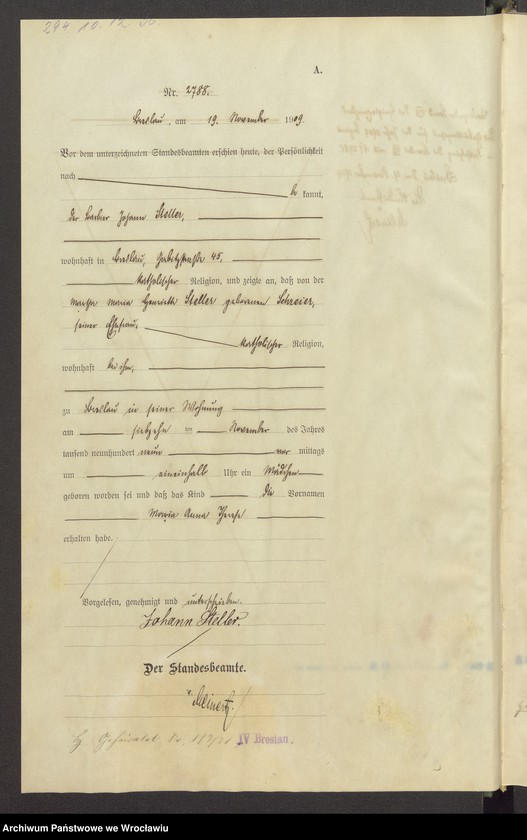 294 10. 12. 30.
A.
Nr. 2788.
Breslau, am 19. November 1909.
Vor dem unterzeichneten Standesbeamten erschien heute, der Persönlichkeit
nach
be kannt,
der Barbier Johann Steller,
wohnhaft in Breslau, Gabitzstraße 45,
katholischer Religion, und zeigte an, daß von der
Martha Maria Henriette Steller geborenen Schreier,
seiner Ehefrau,
katholischer Religion,
wohnhaft bei ihm,
zu Breslau in seiner Wohnung
am siebzehn ten November des Jahres
tausend neunhundert neun vor mittags
um eineinhalb Uhr ein Mädchen
geboren worden sei und daß das Kind die Vornamen
Maria Anna
erhalten habe.
Vorgelesen, genehmigt und unterschrieben.
Johann Steller.
Der Standesbeamte.
IV Breslau.
Archiwum Państwowe we Wrocławiu